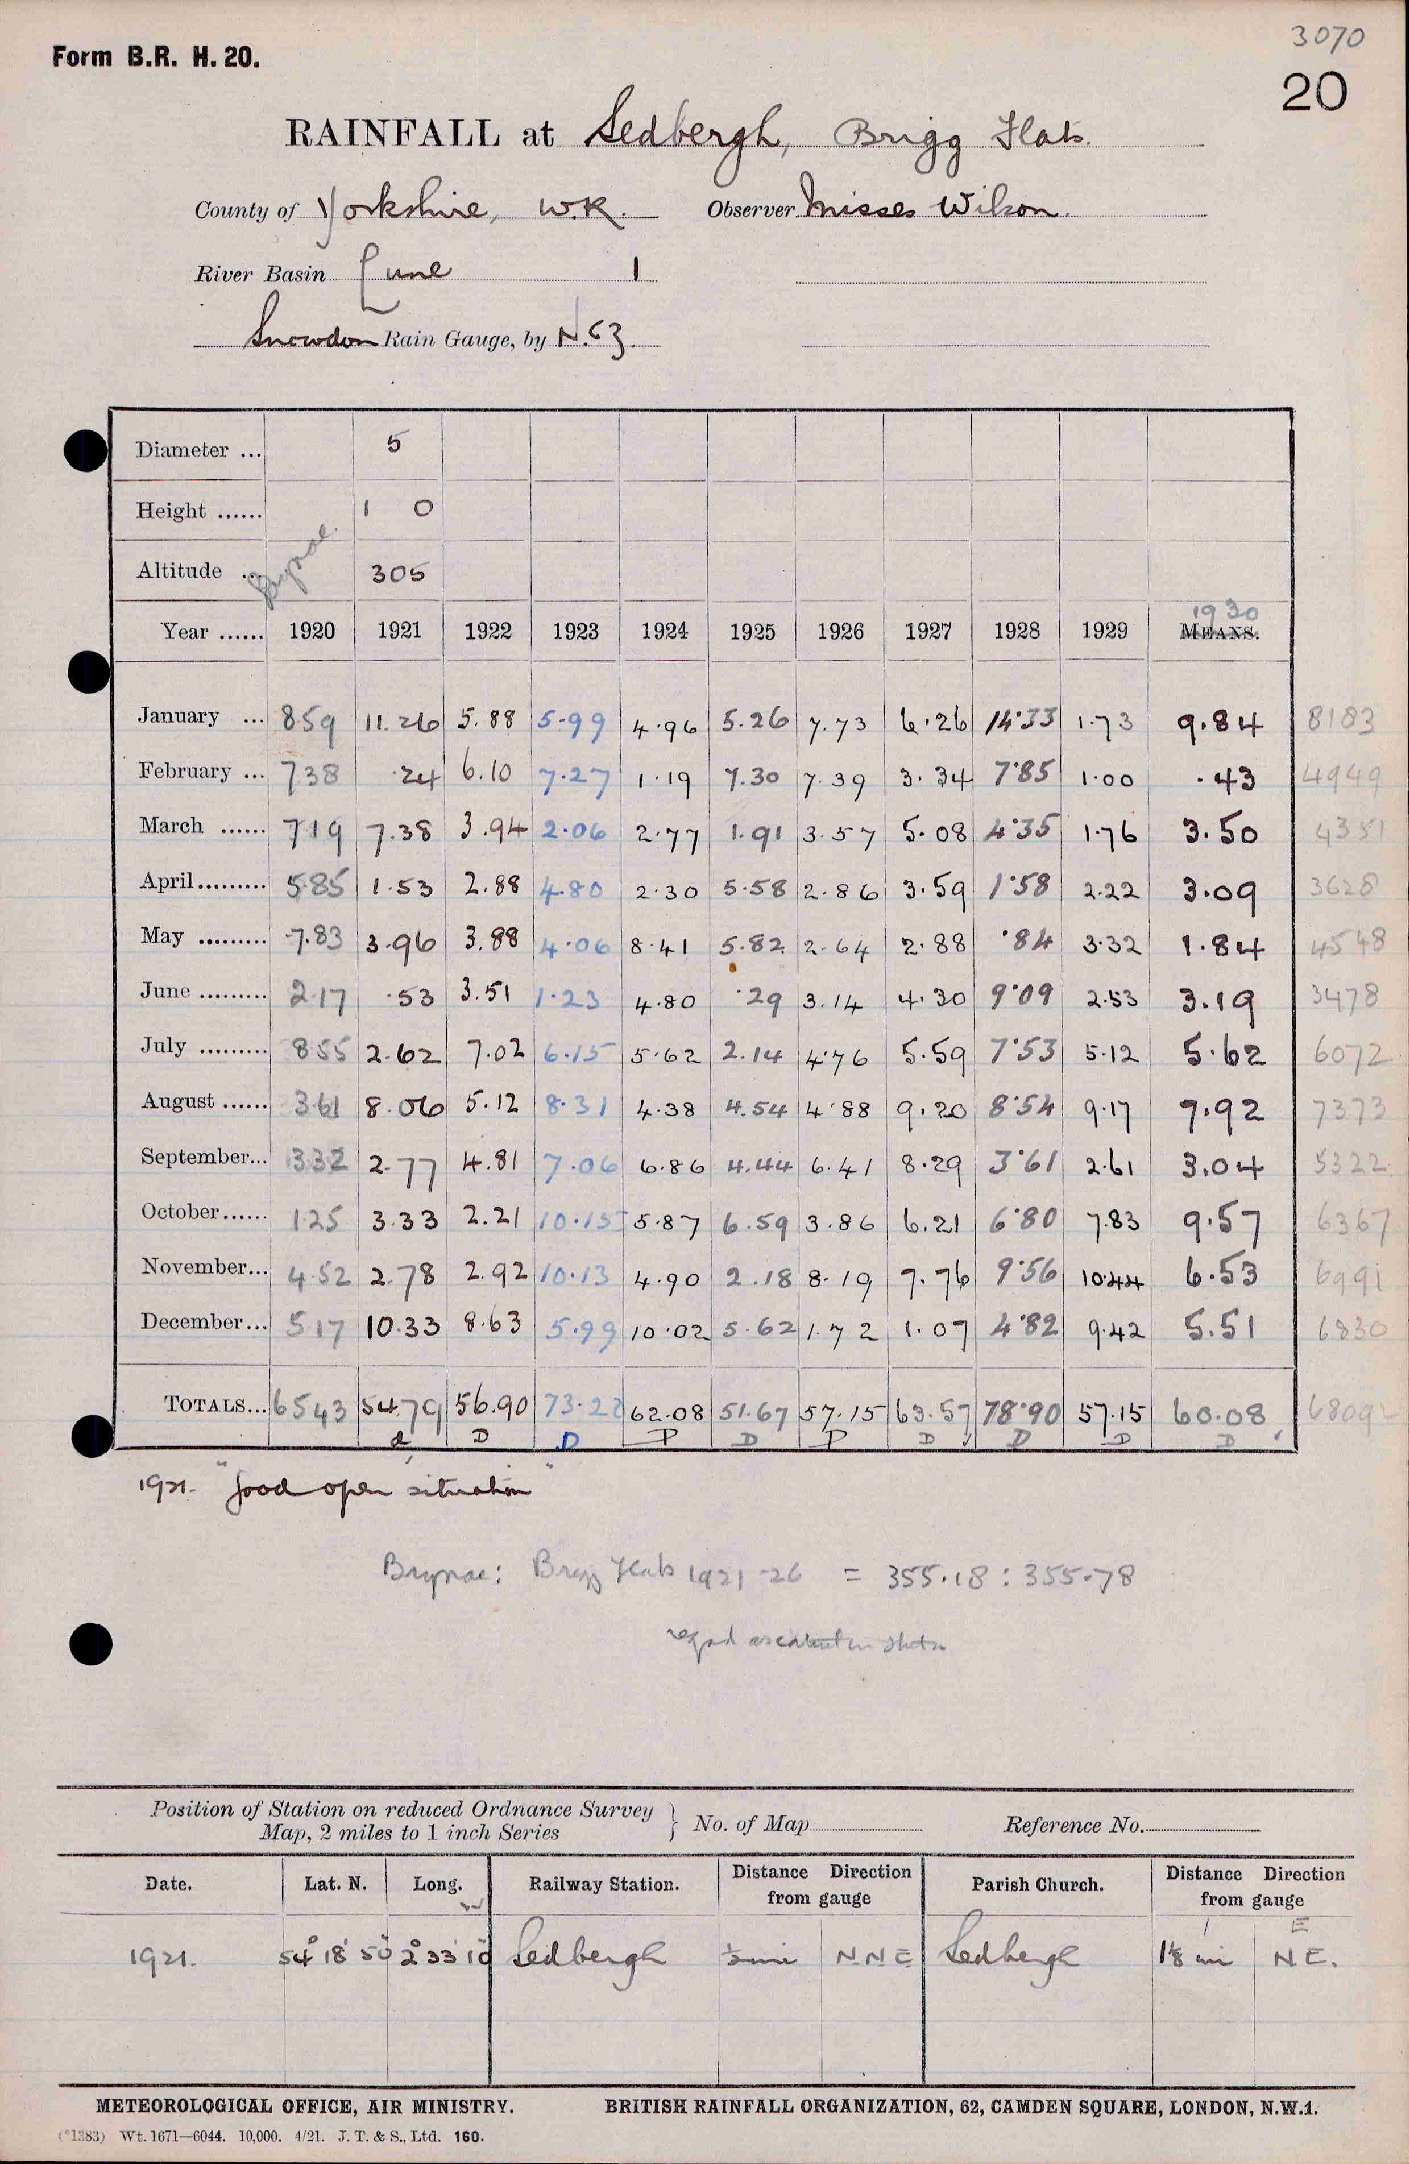 3070
Form B.R. H. 20.
20
RAINFALL at Sedbergh, Brigg Flats.
County of Yorkshire, W.R. Observer Misses Wilson.
River Basin Lune 1
Snowdon Rain Gauge, by N.&Z.
Diameter ... 5
Height ...... 1 0
Altitude ... 305
Brynae.
1930
Year ...... 1920 1921 1922 1923 1924 1925 1926 1927 1928 1929 MEANS.
January ... 859 11.26 5.88 5.99 4.96 5.26 7.73 6.26 14.33 1.73 9.84 8183
February ... 738 .24 6.10 7.27 1.19 7.30 7.39 3.34 7.85 1.00 .43 4949
March ...... 719 7.38 3.94 2.06 2.77 1.91 3.57 5.08 4.35 1.76 3.50 4351
April ......... 585 1.53 2.88 4.80 2.30 5.58 2.86 3.59 1.58 2.22 3.09 3628
May ......... 7.83 3.96 3.88 4.06 8.41 5.82 2.64 2.88 .84 3.32 1.84 4548
June ......... 217 .53 3.51 1.23 4.80 .29 3.14 4.30 9.09 2.53 3.19 3478
July ......... 855 2.62 7.02 6.15 5.62 2.14 4.76 5.59 7.53 5.12 5.62 6072
August ...... 361 8.06 5.12 8.31 4.38 4.54 4.88 9.20 8.54 9.17 7.92 7373
September... 332 2.77 4.81 7.06 6.86 4.44 6.41 8.29 3.61 2.61 3.04 5322
October ...... 125 3.33 2.21 10.15 5.87 6.59 3.86 6.21 6.80 7.83 9.57 6367
November... 4.52 2.78 2.92 10.13 4.90 2.18 8.19 7.76 9.56 10.44 6.53 6991
December... 517 10.33 8.63 5.99 10.02 5.62 1.72 1.07 4.82 9.42 5.51 6830
TOTALS... 6543 54.79 56.90 73.20 62.08 51.67 57.15 63.57 78.90 57.15 60.08 68092
d D D P D P D D D D
1921. "Good open situation"
Brynae: Brigg Flats 1921-26 = 355.18 : 355.78
regard as
Position of Station on reduced Ordnance Survey
Map, 2 miles to 1 inch Series } No. of Map Reference No.
Date. Lat. N. Long. W Railway Station. Distance Direction from gauge Parish Church. Distance Direction from gauge
1921. 54° 18' 50" 2° 33' 10" Sedbergh ½ mi NNE Sedbergh 1⅛ mi E NE.
METEOROLOGICAL OFFICE, AIR MINISTRY. BRITISH RAINFALL ORGANIZATION, 62, CAMDEN SQUARE, LONDON, N.W.1.
(*1383) Wt. 1671—6044. 10,000. 4/21. J. T. & S., Ltd. 160.